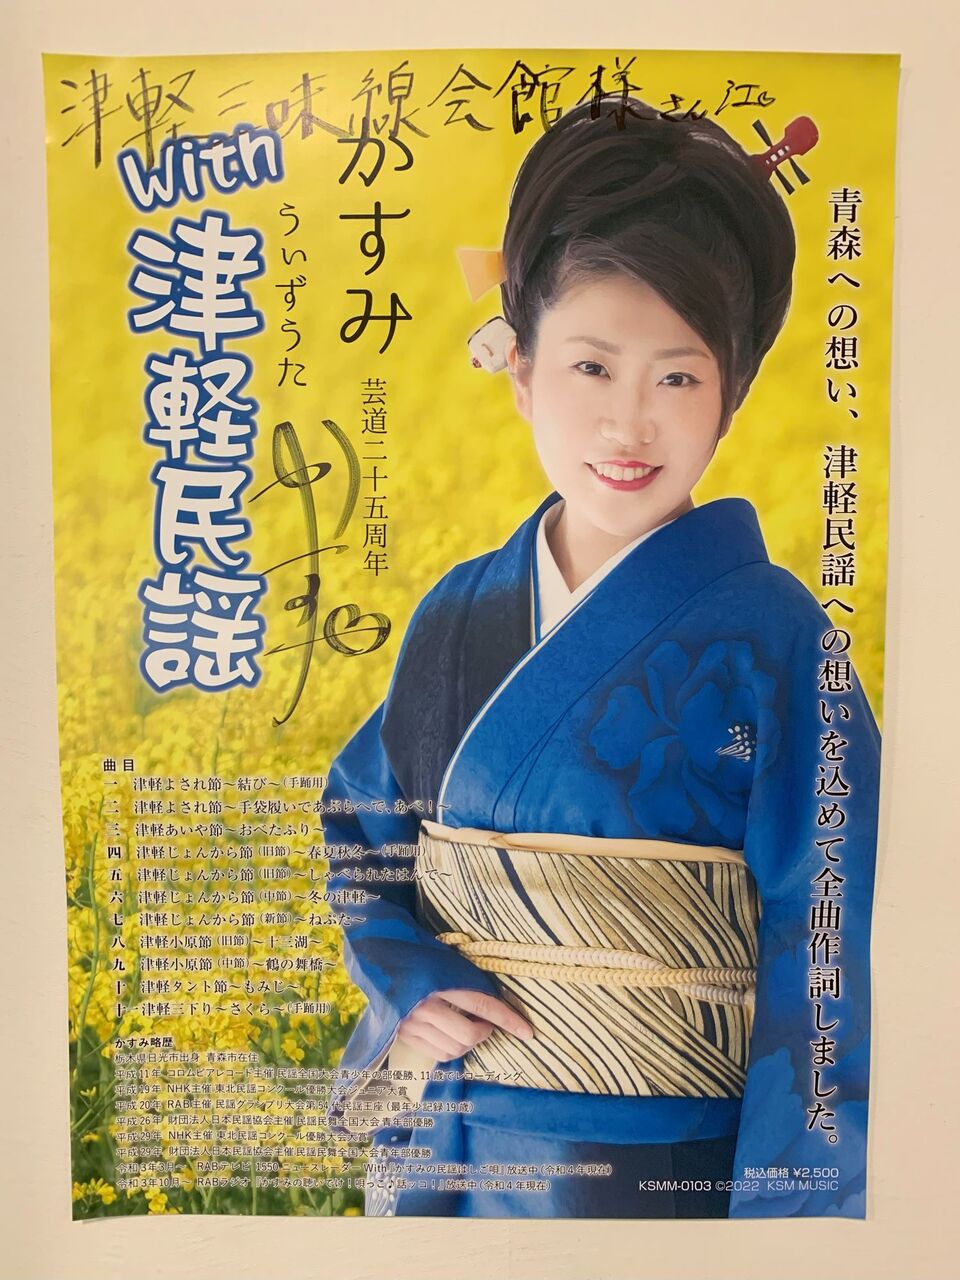 津軽三味線会館様さん江
With
津軽民謡
ういずうた
かすみ
芸道二十五周年
青森への想い、津軽民謡への想いを込めて全曲作詞しました。
曲目
一 津軽よされ節～結び～(手踊用)
二 津軽よされ節～手袋履いであぶらへで、あべ!～
三 津軽あいや節～おべたふり～
四 津軽じょんから節(旧節)～春夏秋冬～(手踊用)
五 津軽じょんから節(旧節)～しゃべられたはんで～
六 津軽じょんから節(中節)～冬の津軽～
七 津軽じょんから節(新節)～ねぷた～
八 津軽小原節(旧節)～十三湖～
九 津軽小原節(中節)～鶴の舞橋～
十 津軽タント節～もみじ～
十一 津軽三下り～さくら～(手踊用)
かすみ略歴
栃木県日光市出身 青森市在住
平成11年 コロムビアレコード主催 民謡全国大会青少年の部優勝、11歳でレコーディング
平成19年 NHK主催 東北民謡コンクール優勝大会ジュニア大賞
平成20年 RAB主催 民謡グランプリ大会第54代民謡王座(最年少記録19歳)
平成26年 財団法人日本民謡協会主催 民謡民舞全国大会 青年部優勝
平成29年 NHK主催 東北民謡コンクール優勝大会大賞
平成29年 財団法人日本民謡協会主催 民謡民舞全国大会青年部優勝
令和3年3月～ RABテレビ 1550 ニュースレーダー With『かすみの民謡はしご唄』放送中(令和4年現在)
令和3年10月～ RABラジオ『かすみの聴いでけ!唄っこ♪話ッコ!』放送中(令和4年現在)
税込価格 ¥2,500
KSMM-0103 ©2022 KSM MUSIC